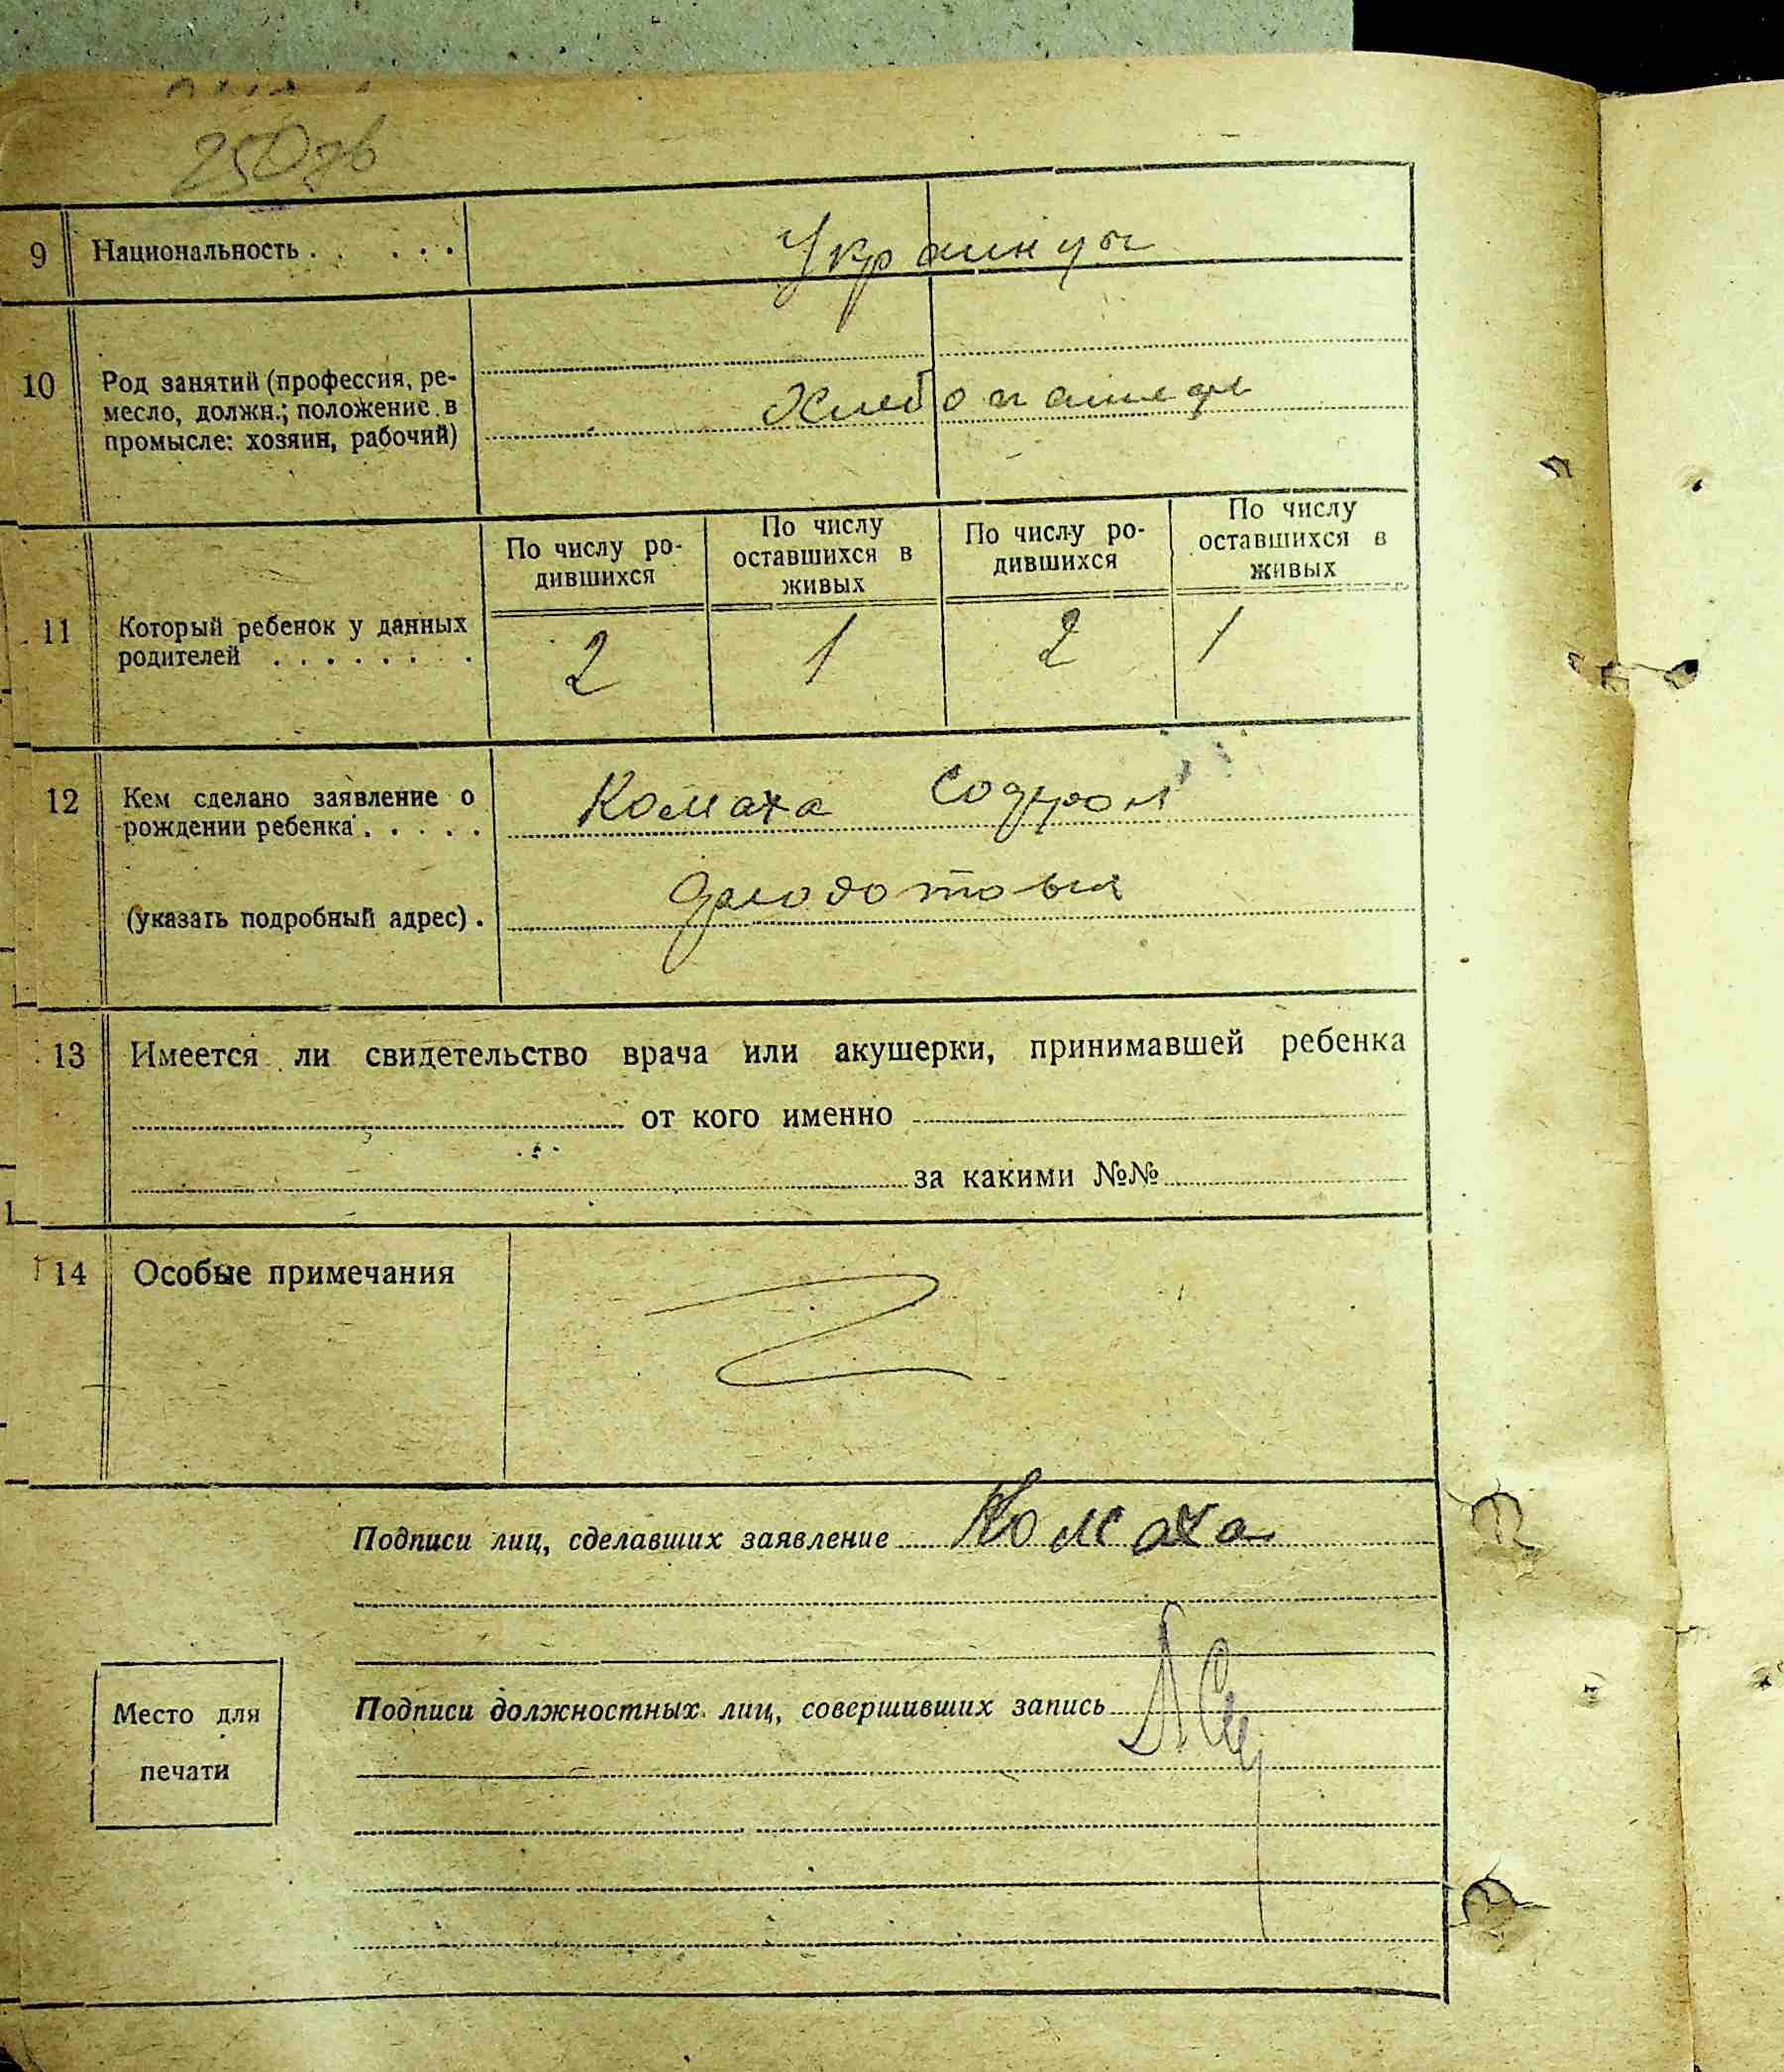 250 зв
9 Национальность . . . . . Украинцы
10 Род занятий (профессия, ре-
месло, должн.; положение в
промысле: хозяин, рабочий) Хлебопашцы
По числу ро-
дившихся
По числу
оставшихся в
живых
По числу ро-
дившихся
По числу
оставшихся в
живых
11 Который ребенок у данных
родителей . . . . . . . .
2 1 2 1
12 Кем сделано заявление о
рождении ребенка . . . . . Комаха
(указать подробный адрес) .
13 Имеется ли свидетельство врача или акушерки, принимавшей ребенка
от кого именно
за какими №№
14 Особые примечания
Подписи лиц, сделавших заявление Комаха
Подписи должностных лиц, совершивших запись
Место для
печати